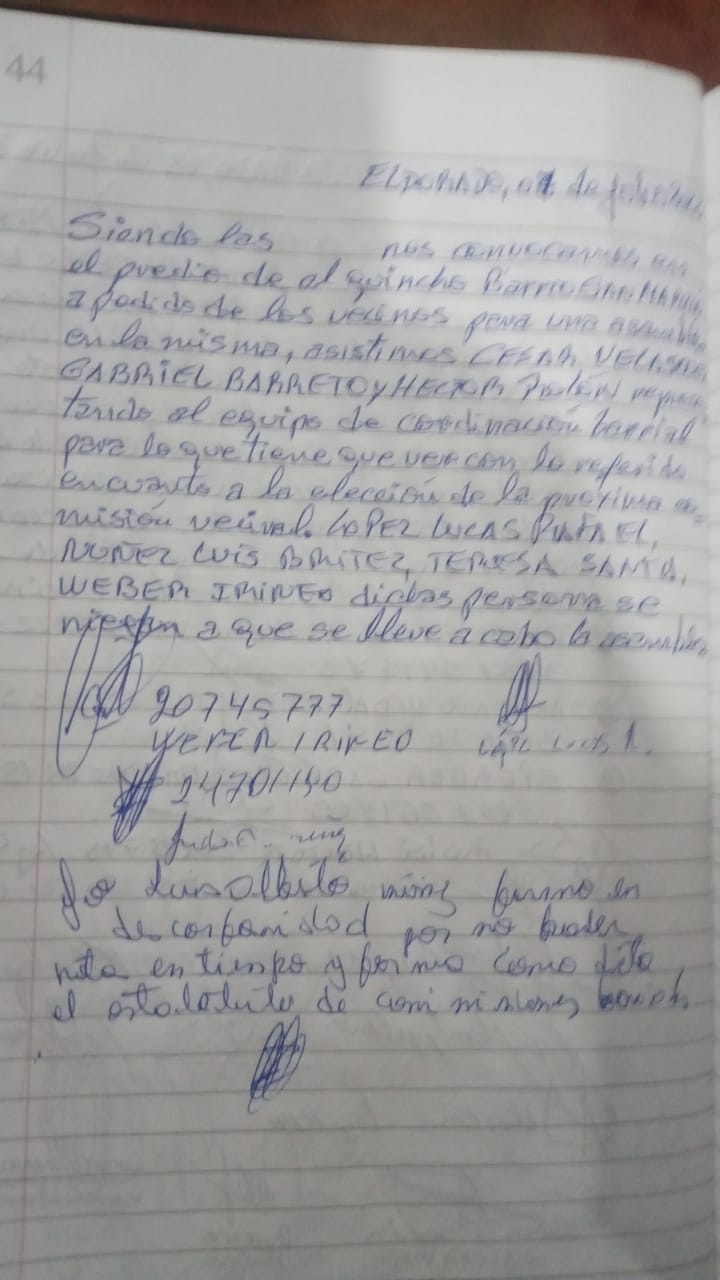 44
ELDORADO, 01 de febrero
Siendo las nos convocamos en
el predio de el quincho Barrio SAN MARTIN
a pedido de los vecinos para una asamblea
en la misma, asistimos CESAR
GABRIEL BARRETO y HECTOR represen
tando al equipo de coordinación barrial
para lo que tiene que ver con lo referido
en cuanto a la elección de la próxima co-
misión vecinal. LOPEZ LUCAS RAFAEL,
NUÑEZ LUIS BRITEZ, TERESA SANTA,
WEBER IRINEO dichas persona se
niegan a que se lleve a cabo la asamblea
20745777
WEBER IRINEO
24701140
Yo Luis Alberto firmo en
por no
nota en tiempo y forma como
el de comisiones